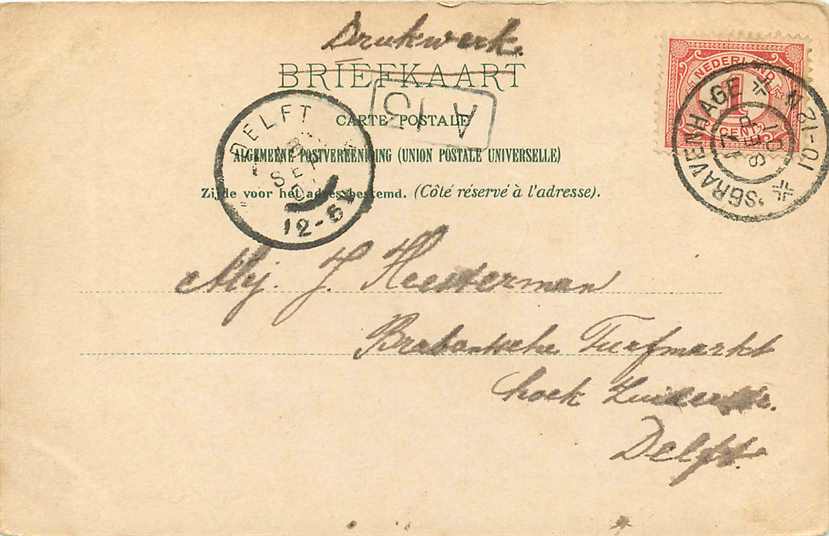 Drukwerk.
BRIEFKAART
CARTE POSTALE
ALGEMEENE POSTVEREENIGING (UNION POSTALE UNIVERSELLE)
Zijde voor het adres bestemd. (Côté réservé à l'adresse).
NEDERLAND
1
CENT
'SGRAVENHAGE
SEP
01
10-12 V
DELFT
SEP
12-5
A 15
Mej. J. Heesterman
Brabantsche Turfmarkt
hoek Zuiderstr.
Delft.